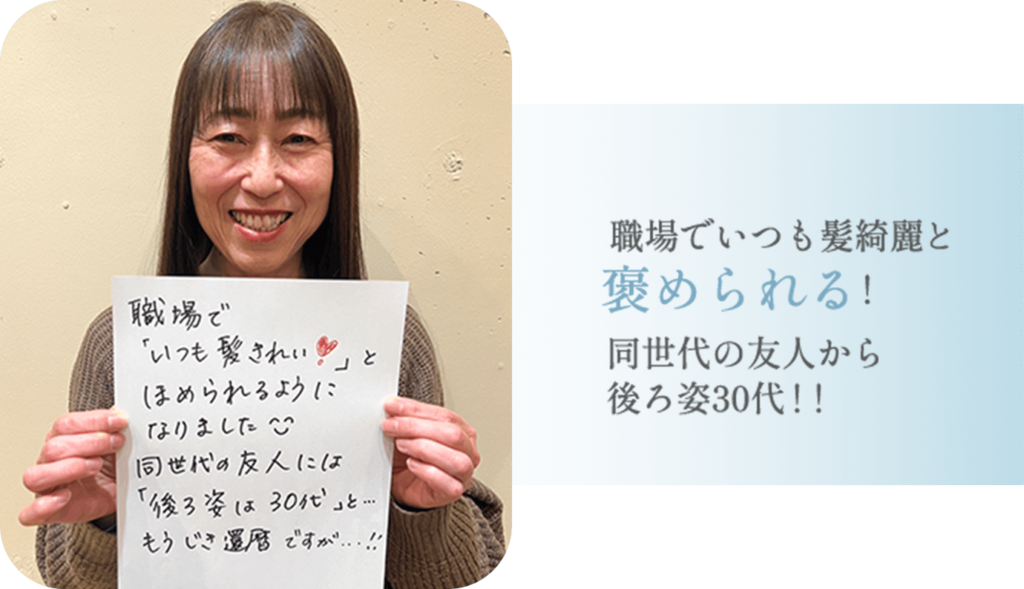 職場で
「いつも髪きれい!」と
ほめられるように
なりました
同世代の友人には
「後ろ姿は30代」と…
もうじき還暦ですが…!!
職場でいつも髪綺麗と
褒められる!
同世代の友人から
後ろ姿30代!!